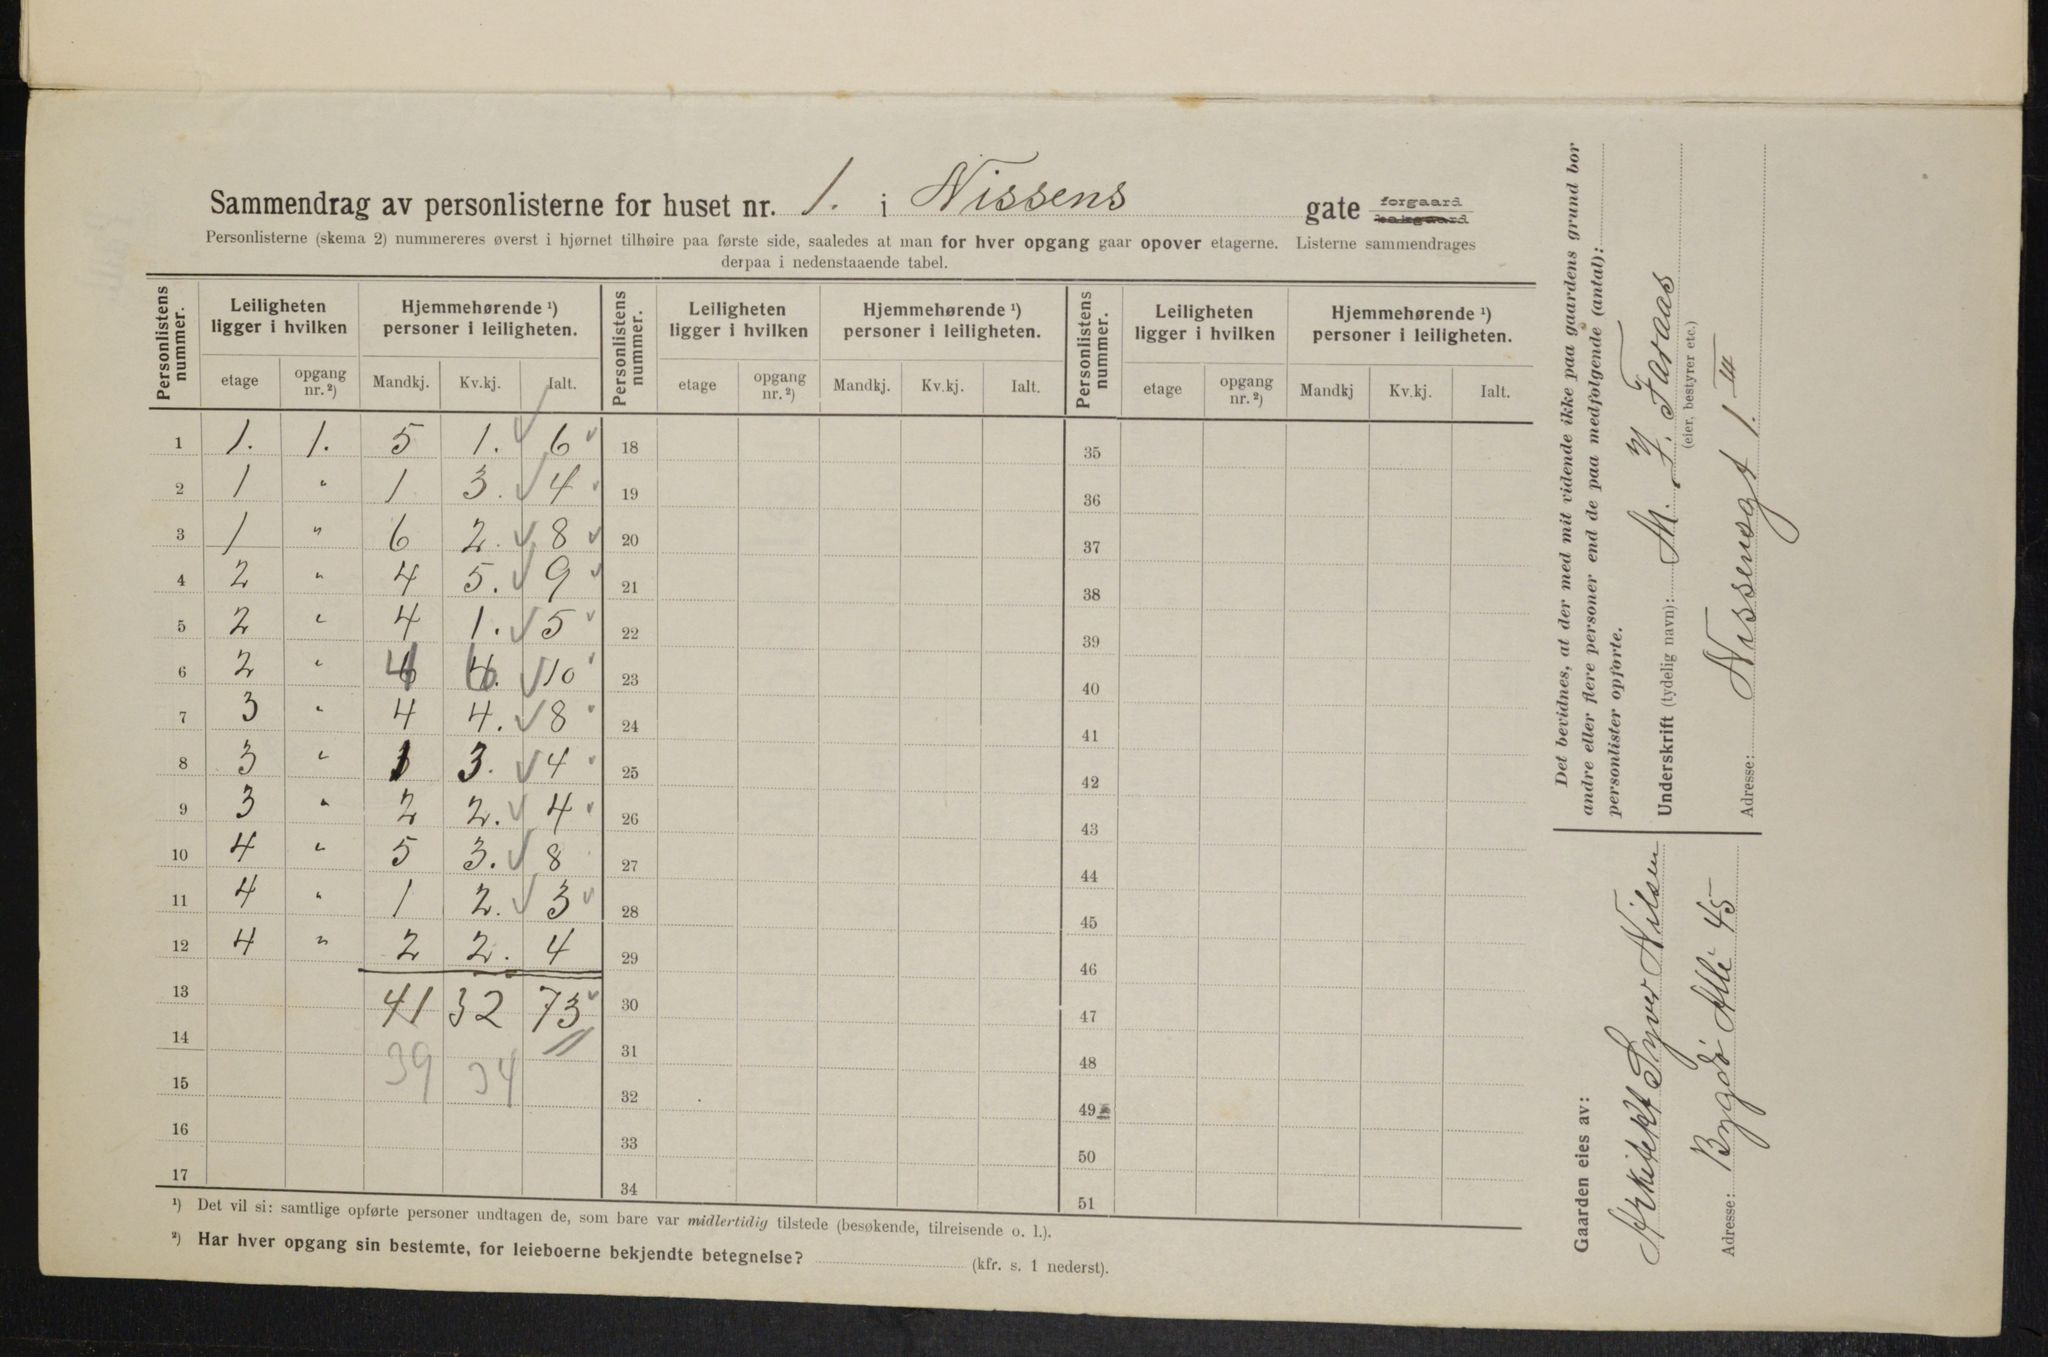 Sammendrag av personlisterne for huset nr. 1. i Nissens gate forgaard bakgaard
Personlisterne (skema 2) nummereres øverst i hjørnet tilhøire paa første side, saaledes at man for hver opgang gaar opover etagerne. Listerne sammendrages
derpaa i nedenstaaende tabel.
Personlistens nummer. Leiligheten ligger i hvilken Hjemmehørende ¹) personer i leiligheten. Personlistens nummer. Leiligheten ligger i hvilken Hjemmehørende ¹) personer i leiligheten. Personlistens nummer. Leiligheten ligger i hvilken Hjemmehørende ¹) personer i leiligheten.
etage opgang nr. ²) Mandkj. Kv.kj. Ialt. etage opgang nr. ²) Mandkj. Kv.kj. Ialt. etage opgang nr. ²) Mandkj Kv.kj. Ialt.
1 1. 1. 5 1. 6 18 35
2 1 " 1 3. 4 19 36
3 1 " 6 2. 8 20 37
4 2 " 4 5. 9 21 38
5 2 " 4 1. 5 22 39
6 2 " 4 6 10 23 40
7 3 " 4 4. 8 24 41
8 3 " 1 3. 4 25 42
9 3 " 2 2. 4 26 43
10 4 " 5 3. 8 27 44
11 4 " 1 2. 3 28 45
12 4 " 2 2. 4 29 46
13 41 32 73 30 47
14 39 34 31 48
15 32 49
16 33 50
17 34 51
¹) Det vil si: samtlige opførte personer undtagen de, som bare var midlertidig tilstede (besøkende, tilreisende o. l.).
²) Har hver opgang sin bestemte, for leieboerne bekjendte betegnelse? (kfr. s. 1 nederst).
Det bevidnes, at der med mit vidende ikke paa gaardens grund bor
andre eller flere personer end de paa medfølgende (antal):
personlister opførte.
Underskrift (tydelig navn): M. J. Faraas
(eier, bestyrer etc.)
Adresse: Nissensgt 1. III
Gaarden eies av:
Arkitekt Syver Nilsen
Adresse: Bygdø Allé 45